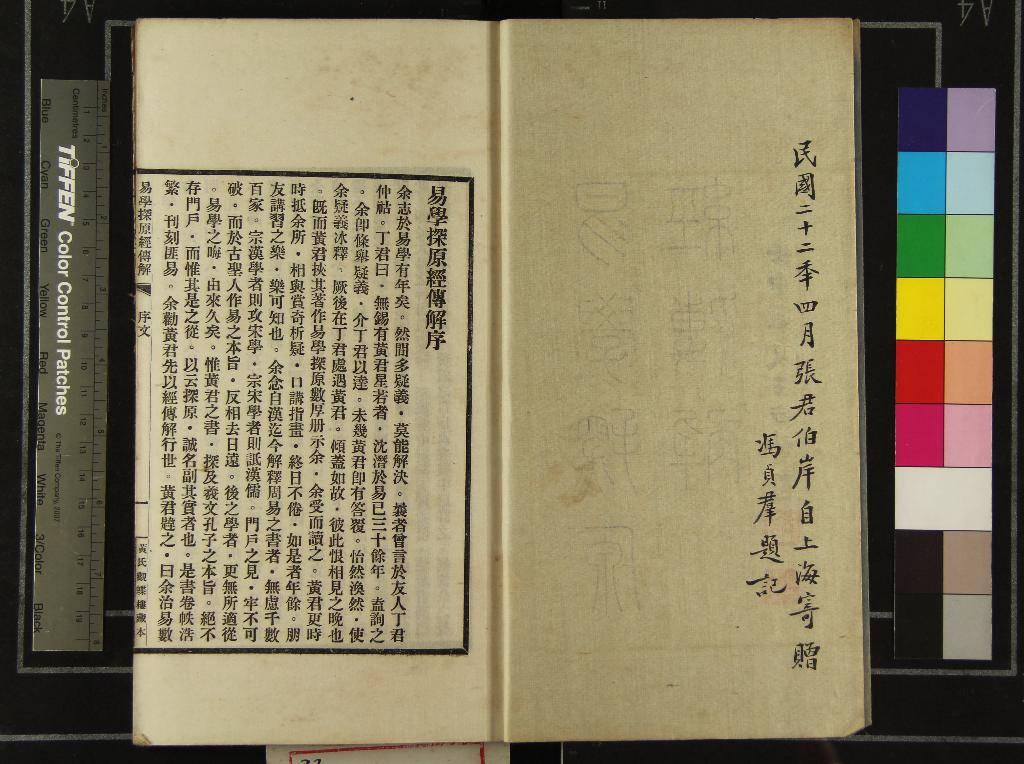 民國二十二年四月張君伯岸自上海寄贈
馮貞羣題記
易學探原經傳解序
余志於易學有年矣。然間多疑義。莫能解決。曩者曾言於友人丁君
仲祜。丁君曰。無錫有黃君星若者。沈潛於易已三十餘年。盍詢之
。余卽條舉疑義。介丁君以達。未幾黃君卽有答覆。怡然渙然。使
余疑義冰釋。厥後在丁君處遇黃君。傾蓋如故。彼此恨相見之晚也
。旣而黃君挾其著作易學探原數厚册示余。余受而讀之。黃君更時
時抵余所。相與賞奇析疑。口講指畫。終日不倦。如是者年餘。朋
友講習之樂。樂可知也。余念自漢迄今解釋周易之書者。無慮千數
百家。宗漢學者則攻宋學。宗宋學者則詆漢儒。門戶之見。牢不可
破。而於古聖人作易之本旨。反相去日遠。後之學者。更無所適從
。易學之晦。由來久矣。惟黃君之書。探及羲文孔子之本旨。絕不
存門戶。而惟其是之從。以云探原。誠名副其實者也。是書卷帙浩
繁。刊刻匪易。余勸黃君先以經傳解行世。黃君韙之。曰余治易數
易學探原經傳解 序文 一 黃氏觀蝶樓藏本
Inches
Centimetres
TIFFEN Color Control Patches
© The Tiffen Company, 2007
Blue Cyan Green Yellow Red Magenta White 3/Color Black
A4
A4